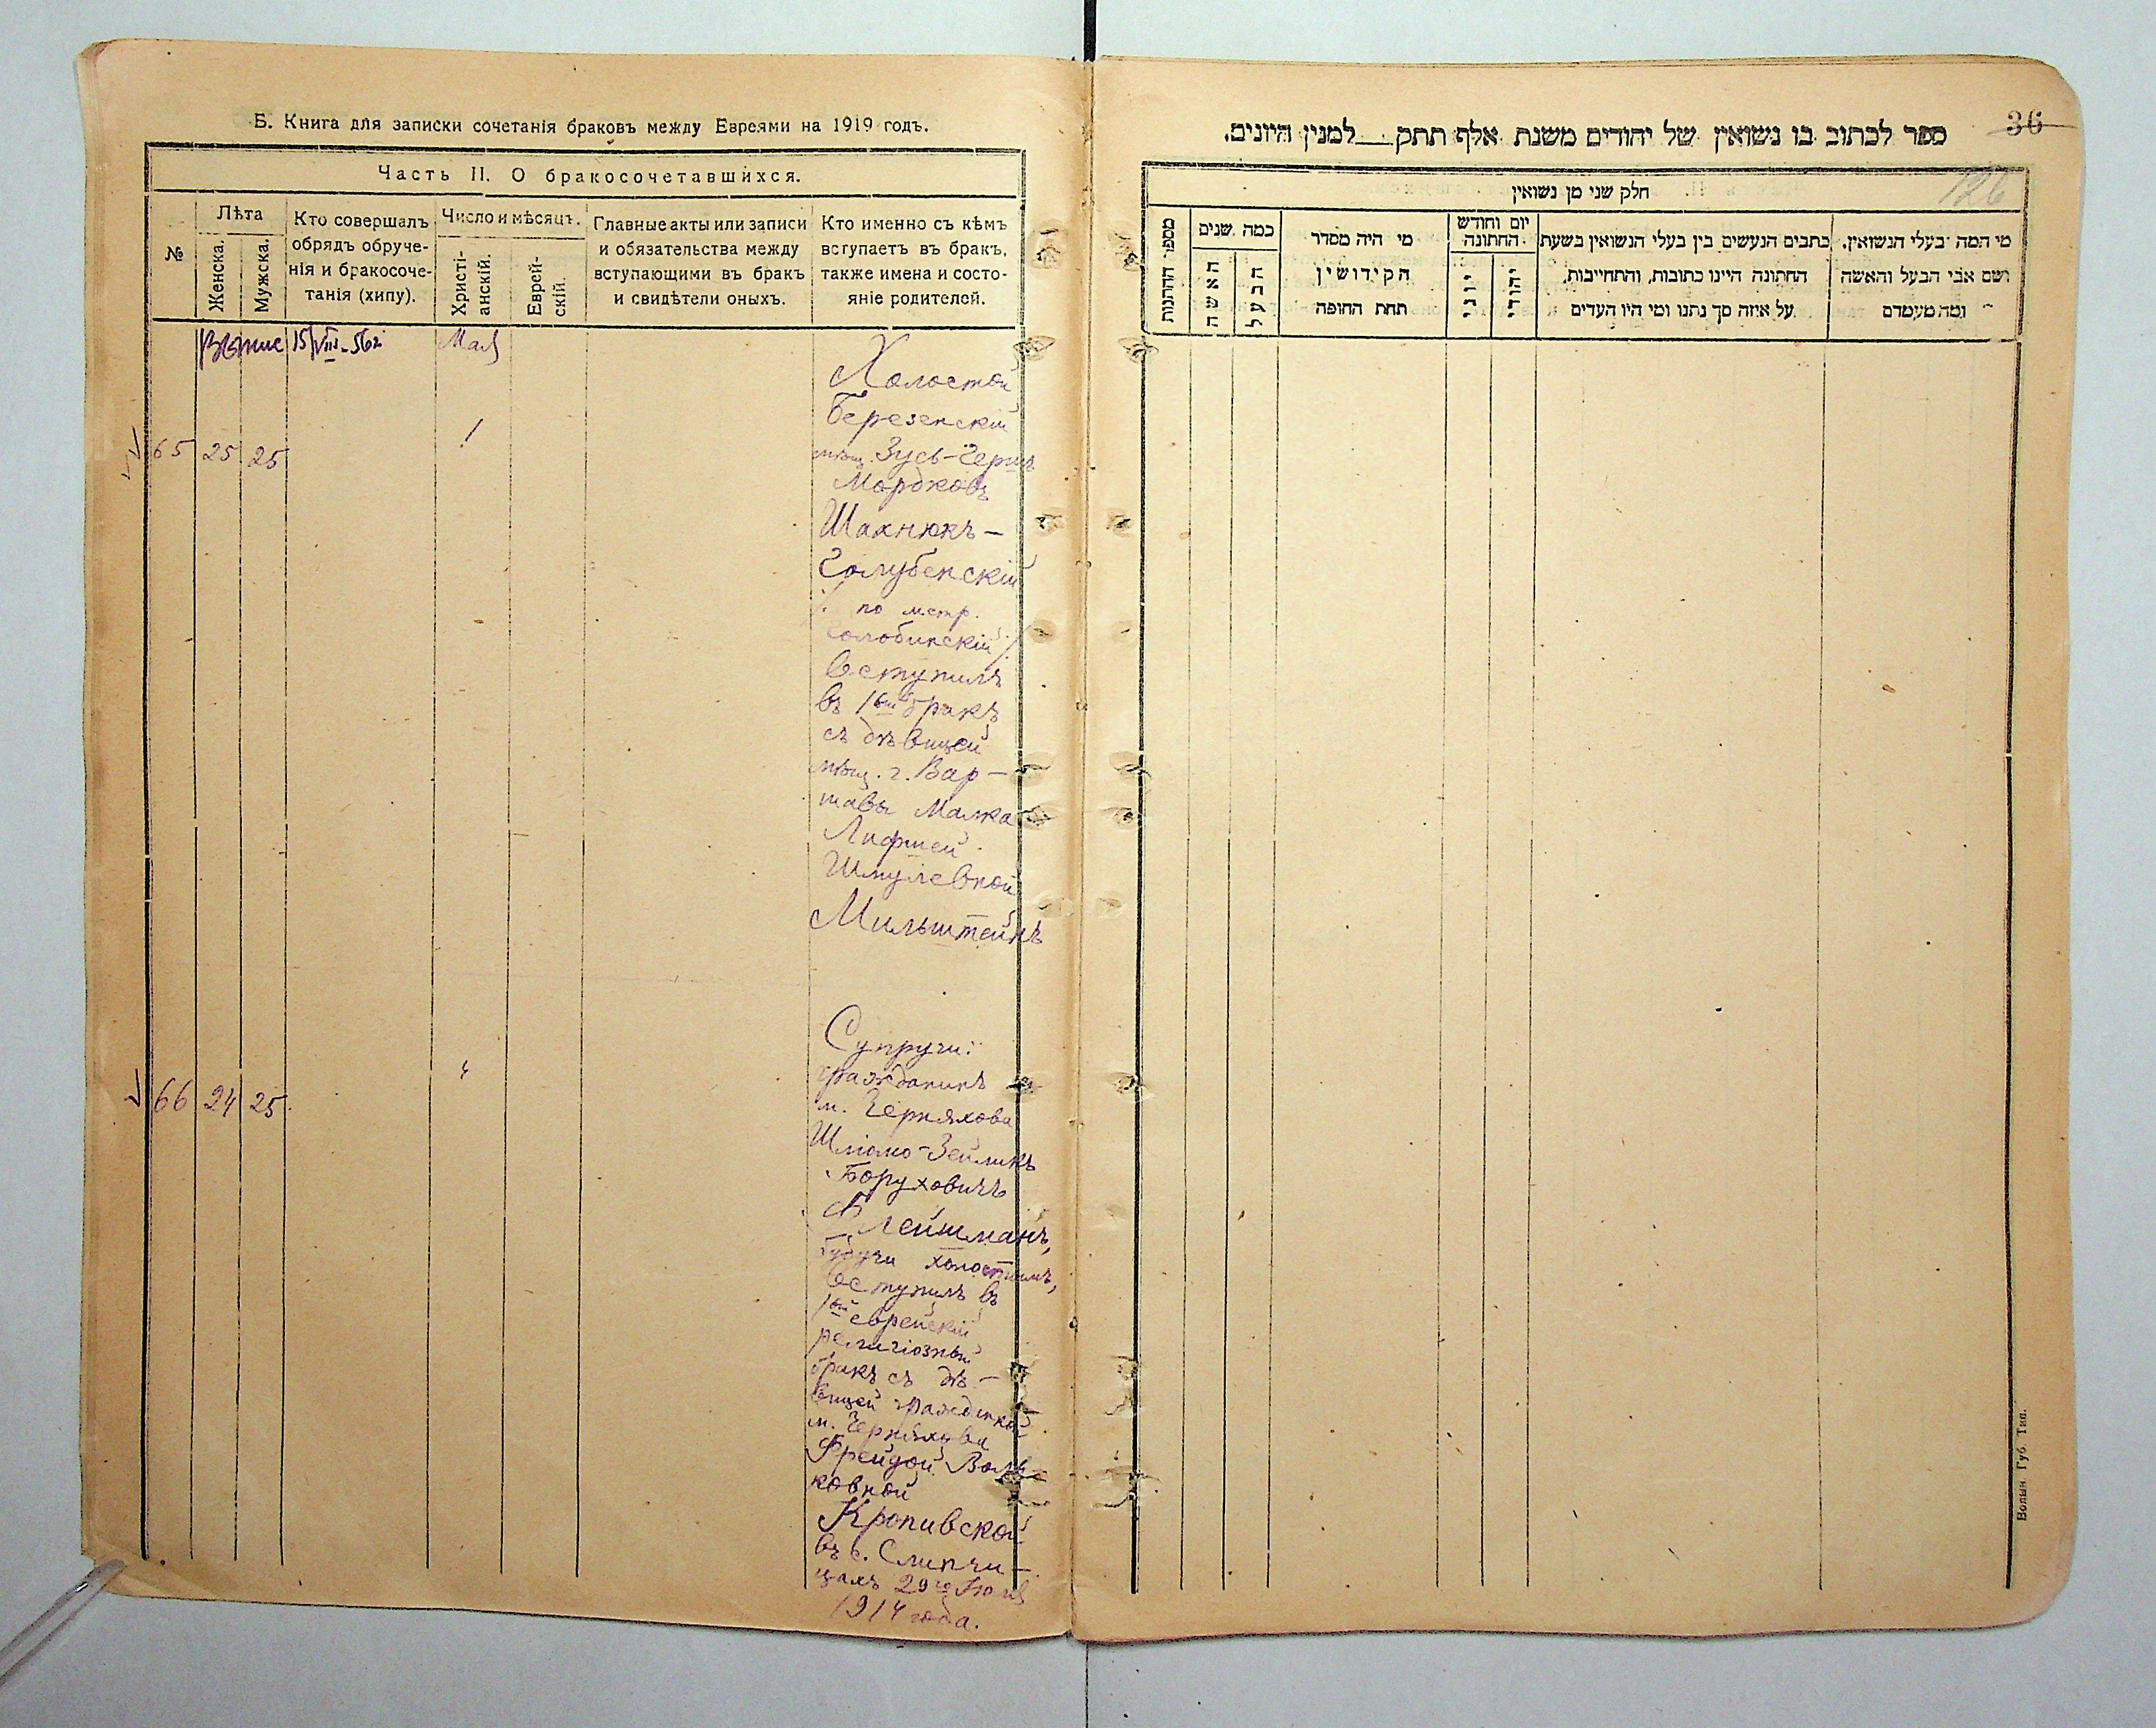 Б. Книга для записки сочетанія браковъ между Евреями на 1919 годъ.
Часть II. О бракосочетавшихся.
№
Лѣта
Женска.
Мужска.
Кто совершалъ
обрядъ обруче-
нія и бракосоче-
танія (хипу).
Число и мѣсяцъ.
Христі-
анскій.
Еврей-
скій.
Главные акты или записи
и обязательства между
вступающими въ бракъ
и свидѣтели оныхъ.
Кто именно съ кѣмъ
вступаетъ въ бракъ,
также имена и состо-
яніе родителей.
15/VIII-562 Май
65 25 25 1
Холостой
Березенскій
мѣщ. Зусь-Герш
Мордковъ
Шахнюкъ-
Голубенскій
/. по метр.
Голобинскій ./
вступилъ
въ 1ый бракъ
съ дѣвицей
мѣщ. г. Вар-
шавы Малка
Лифшей
Шмулевной
Мильштейнъ
66 24 25 "
Супруги:
гражданинъ
м. Черняхова
Шліомо-Зейликъ
Боруховичъ
Флейшманъ,
будучи холостымъ,
вступилъ въ
1ый еврейскій
религіозный
бракъ съ дѣ-
вицей гражданкой
м. Черняхова
Фрейдой Воль-
ковной
Кропивской
въ с. Слипчи-
цахъ 29го Іюля
1914 года.
36
126
ספר לכתוב בו נשואין של יהודים משנת אלף תתק___למנין היונים.
חלק שני מן נשואין
מספר החתנות
כמה שנים
האשה
הבעל
מי היה מסדר
הקידושין
תחת החופה
יום וחודש
החתונה
יוני
יהודי
כתבים הנעשים בין בעלי הנשואין בשעת
החתונה היינו כתובות, והתחייבות,
על איזה סך נתנו ומי היו העדים
מי המה בעלי הנשואין,
ושם אבי הבעל והאשה
ומה מעמדם
Волын Губ Тип.